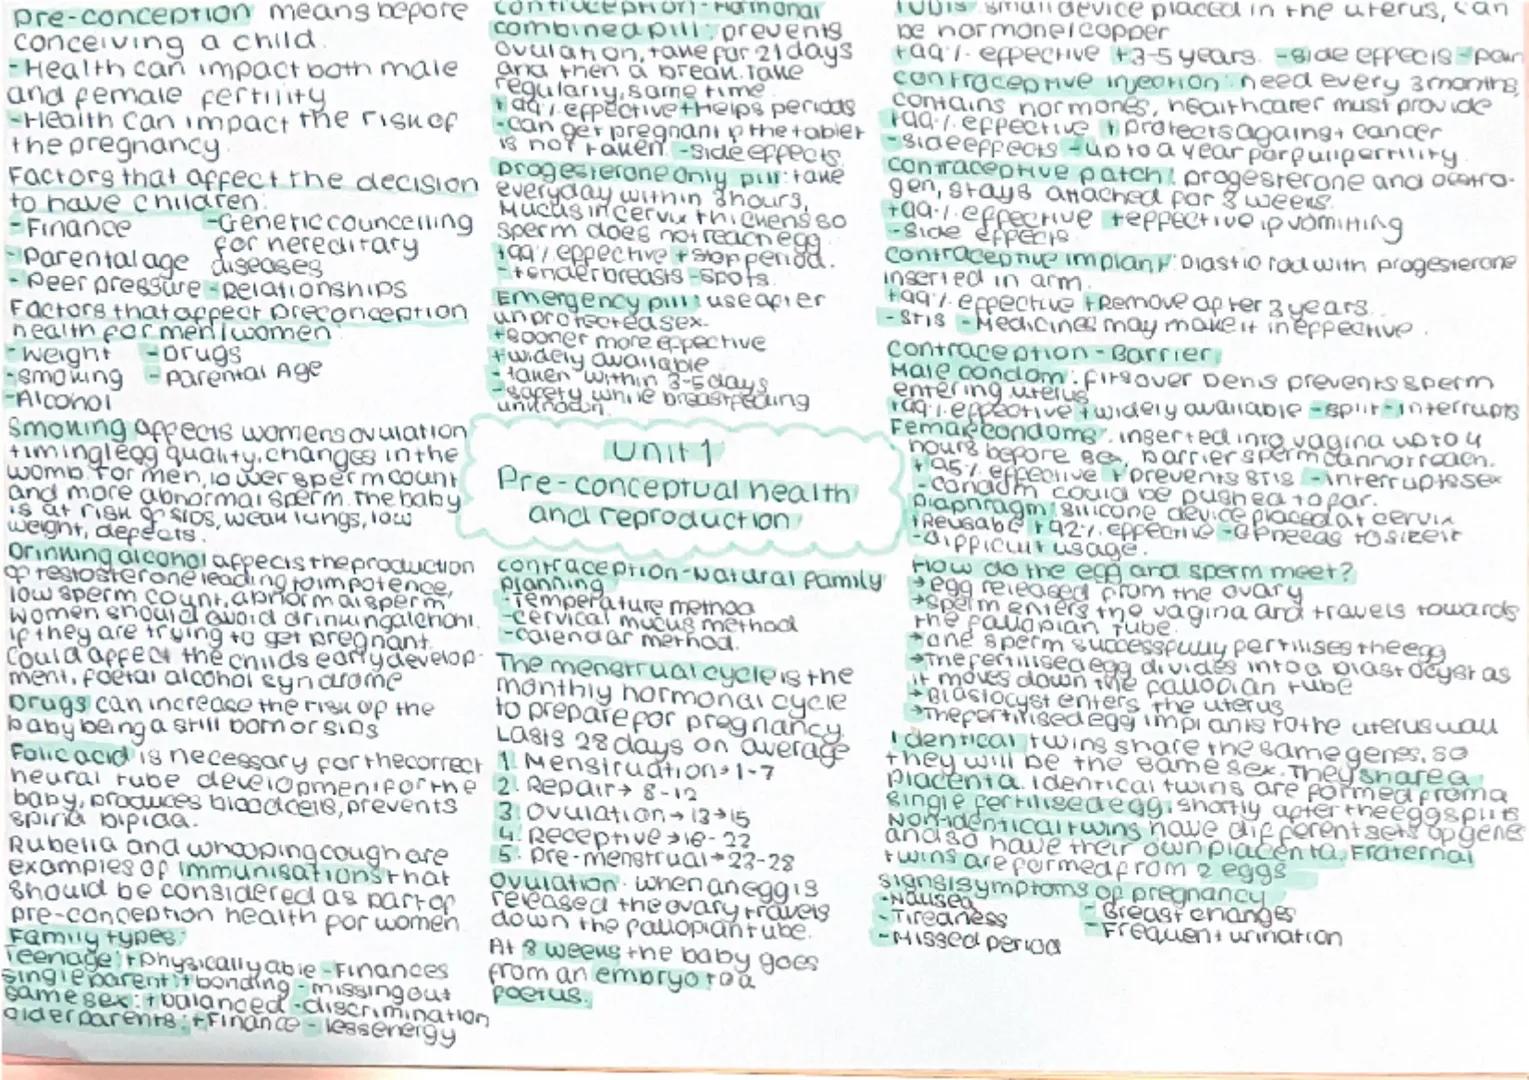 Pre-conception means before
conceiving a child.
-Health can impact both male
and female fertility
-Health can impact the risk of
the pregnancy.
Factors that affect the decision
to have children:
-Finance
-Genetic councelling
for hereditary
diseases
-Parental age
-Peer pressure
-Relationships
Factors that affect preconception
health for men/women
-Weight
-Drugs
-Smoking
-Parental Age
-Alcohol
Smoking affects womens ovulation
timing/egg quality, changes in the
womb. For men, lower sperm count
and more abnormal sperm. The baby
is at risk of SIDS, weak lungs, low
weight, defects.
Drinking alcohol affects the production
of testosterone leading to impotence,
low sperm count, abnormal sperm
women should avoid drinking alcohol
if they are trying to get pregnant.
Could affect the childs early develop-
ment, foetal alcohol syndrome
Drugs can increase the risk of the
baby being a still born or SIDS
Folic acid is necessary for the correct
neural tube development for the
baby, produces blood cells, prevents
spina bifida.
Rubella and whooping cough are
examples of immunisations that
should be considered as part of
pre-conception health for women
Family types:
Teenage: +physically able -Finances
single parent: +bonding -missing out
same sex: +balanced -discrimination
older parents: +Finance -less energy
Contraception-Hormonal
combined pill: prevents
Ovulation, take for 21 days
and then a break. Take
regularly, same time.
+99% effective +Helps periods
-can get pregnant if the tablet
is not taken. -Side effects
Progesterone only pill: take
everyday within 3 hours,
Mucus in cervix thickens so
sperm does not reach egg
+99% effective +stop period.
-tender breasts -spots.
Emergency pill: use after
unprotected sex.
+sooner more effective
+widely available
-taken within 3-5 days
-safety while breastfeeding
unknown.
Unit 1
Pre-conceptual health
and reproduction
contraception-Natural family
planning
-Temperature method
-cervical mucus method
-calendar method.
The menstrual cycle is the
monthly hormonal cycle
to prepare for pregnancy.
Lasts 28 days on average
1. Menstruation→1-7
2. Repair→ 8-12
3. Ovulation→13→15
4. Receptive→16-22
5. Pre-menstrual→23-28
Ovulation: when an egg is
released the ovary travels
down the fallopian tube.
At 8 weeks the baby goes
from an embryo to a
foetus.
IUDIS small device placed in the uterus, can
be hormone/copper
+99% effective +3-5 years. -side effects -pain
contraceptive injection: need every 3 months,
contains hormones, healthcarer must provide
+99% effective +protects against cancer
-side effects -up to a year for full fertility.
contraceptive patch: progesterone and oestro-
gen, stays attached for 3 weeks.
+99% effective +effective if vomiting
-side effects
contraceptive implant: plastic rod with progesterone
inserted in arm.
+99% effective +Remove after 3 years.
-STIs -Medicines may make it ineffective.
Contraception-Barrier
Male condom: fits over penis prevents sperm
entering uterus
+99% effective +widely available -split -interrupts
Female condoms: inserted into vagina up to 4
hours before sex, barrier sperm cannot reach.
+95% effective +prevents STIs -interrupts sex
-condom could be pushed to far.
Diaphragm: silicone device placed at cervix
+Reusable +92% effective -GP needs to size it
-difficult usage.
How do the egg and sperm meet?
→egg released from the ovary
→sperm enters the vagina and travels towards
the fallopian tube.
→one sperm successfully fertilises the egg
→The fertilised egg divides into a blastocyst as
it moves down the fallopian tube
→Blastocyst enters the uterus
→The fertilised egg implants to the uterus wall
Identical twins share the same genes, so
they will be the same sex. They share a
placenta. Identical twins are formed from a
single fertilised egg, shortly after the egg splits
Non-identical twins have different sets of genes
and so have their own placenta. Fraternal
twins are formed from 2 eggs
signs/symptoms of pregnancy
-Nausea
-Breast changes
-Tiredness
-Frequent urination
-Missed period